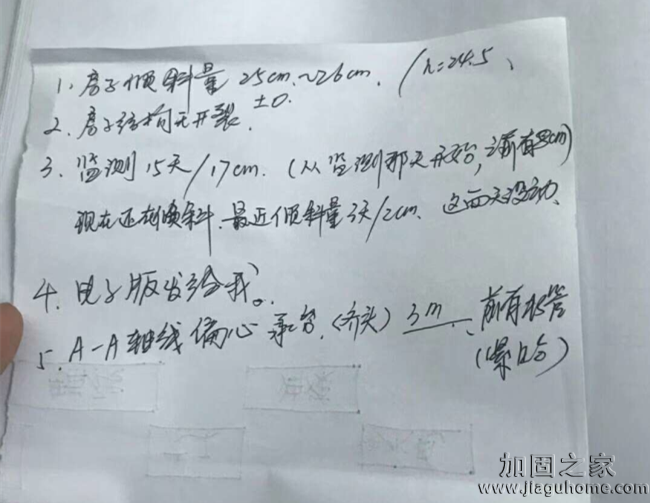 1、房子倾斜量 25cm~26cm. /h=24.5、
2、房子结构无开裂. ±0.
3、监测15天/17cm. (从监测那天开始, 之前有8cm)
现在还在倾斜. 最近倾斜量3天/2cm. 这两天没动.
4、电子版发给我。
5、A-A轴线偏心承台. (齐头) 3m 、前有水管
(爆的)
加固之家
www.jiaguhome.com